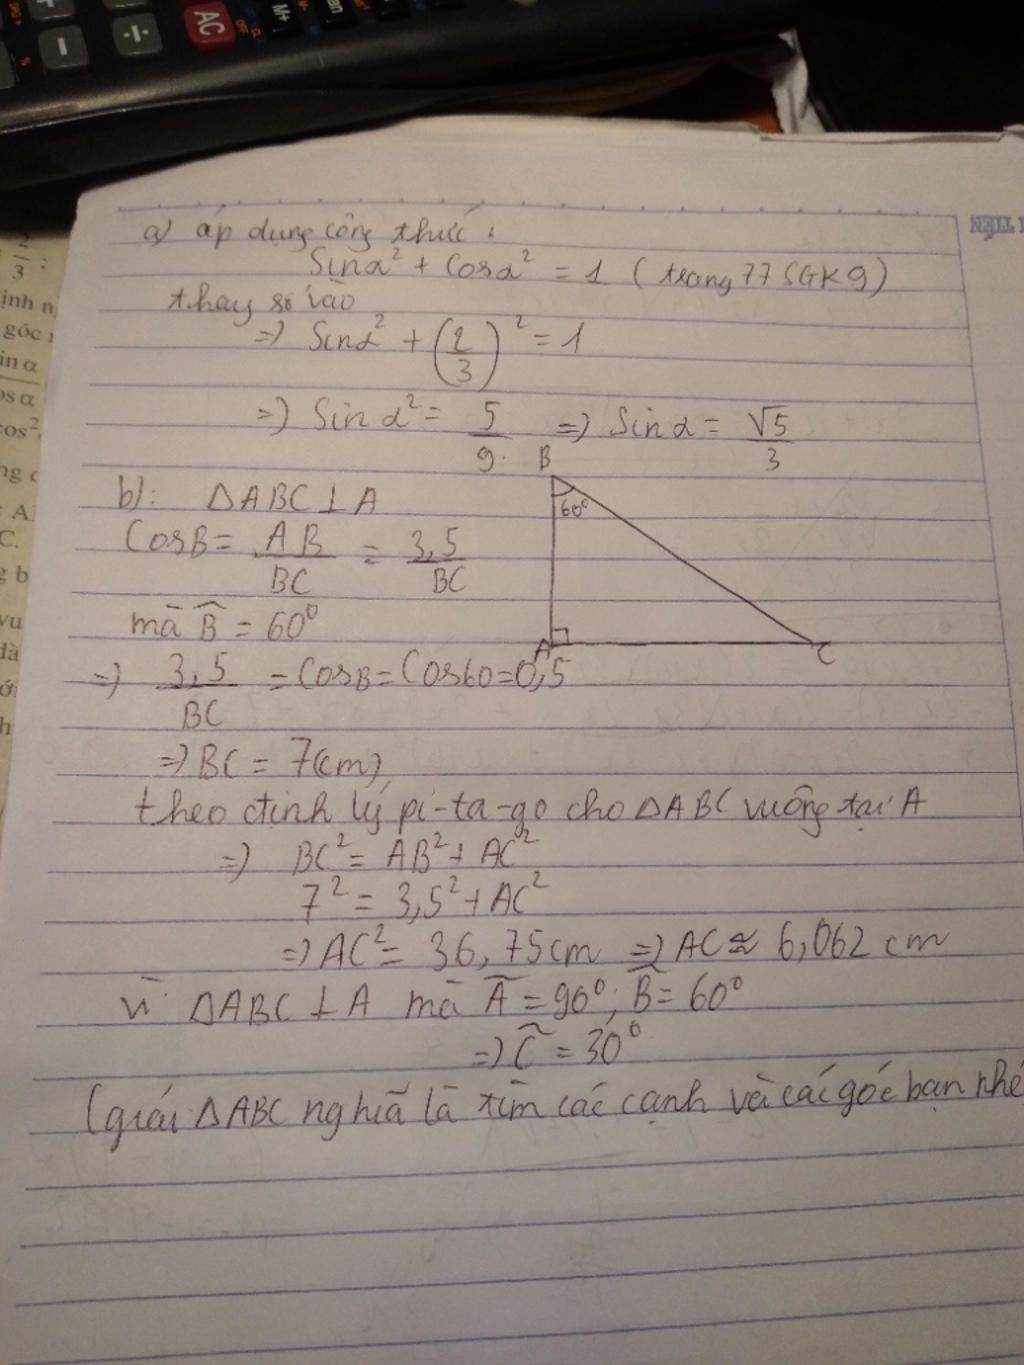 AC
M+
÷
−
%
OFF
2
3 :
góc
in α
os α
cos²
ng c
C.
g b
vu
dà
a) áp dụng công thức :
Sinα² + Cosα² = 1 ( trang 77 SGK 9)
thay số vào
=) Sinα² + (2/3)² = 1
=) Sin α² = 5/9. =) Sinα = √5/3
b): ΔABC ⊥ A
CosB = AB/BC = 3,5/BC
mà B̂ = 60⁰
=) 3,5/BC = CosB = Cos60 = 0,5
=) BC = 7(cm)
B
60⁰
A
C
theo định lý pi-ta-go cho ΔABC vuông tại A
=) BC² = AB² + AC²
7² = 3,5² + AC²
=) AC² = 36,75cm =) AC ≈ 6,062 cm
vì ΔABC ⊥ A mà Â = 90⁰; B̂ = 60⁰
=) Ĉ = 30⁰
(giải ΔABC nghĩa là tìm các cạnh và các góc bạn nhé